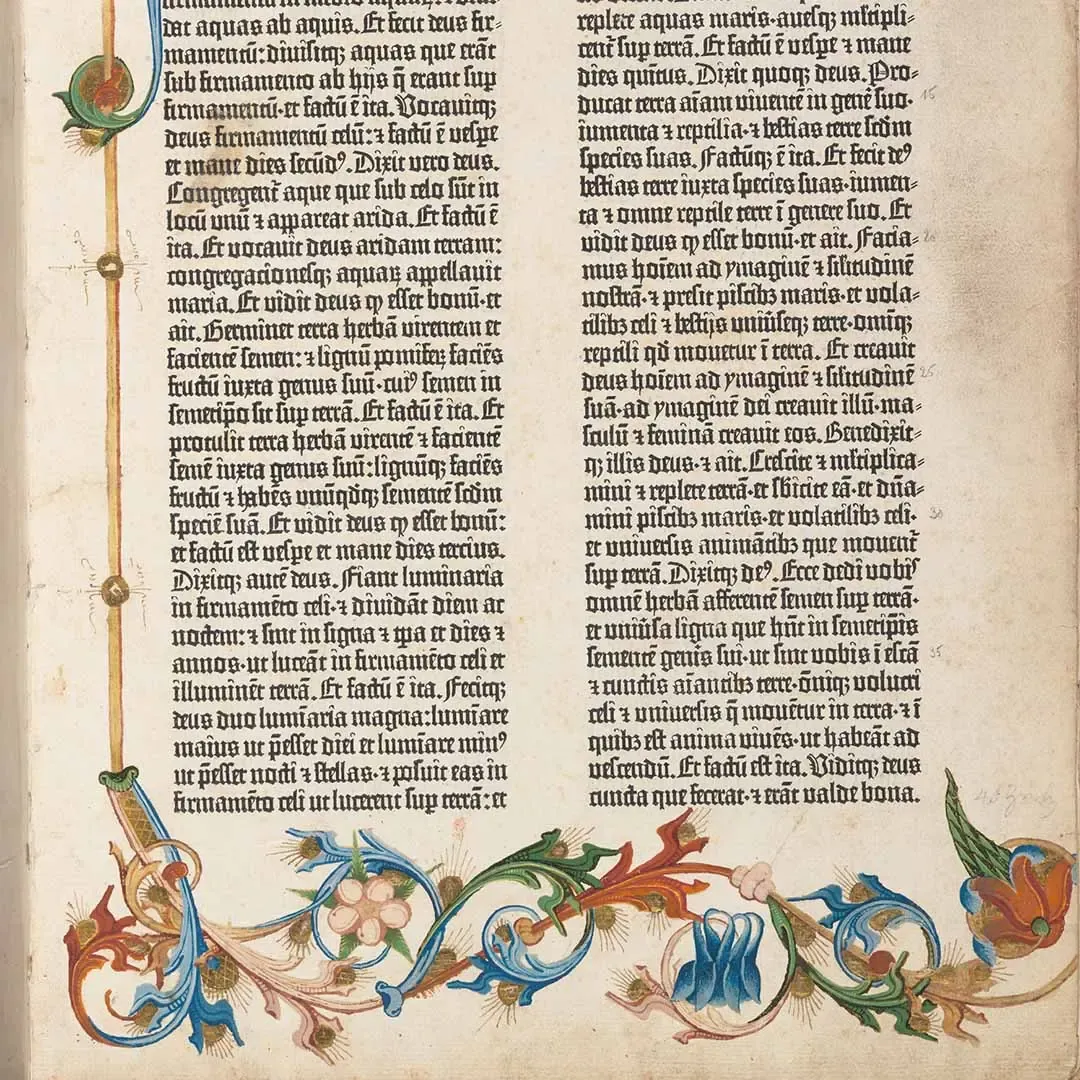 dat aquas ab aquis. Et fecit deus fir⸗
mamentū: diuisitq; aquas que erāt
sub firmamento ab hijs q̄ erant sup
firmamentū·et factū ē ita. Vocauitq;
deus firmamentū celū: ⁊ factū ē vespe
et mane dies secūdꝰ. Dixit vero deus.
Congregent᷑ aque que sub celo sūt in
locū vnū ⁊ appareat arida. Et factū ē
ita. Et vocauit deus aridam terram:
congregacionesq; aquaꝝ appellauit
maria. Et vidit deus ꝙ esset bonū·et
ait. Germinet terra herbā virentem et
facientē semen: ⁊ lignū pomifeꝝ faciēs
fructū iuxta genus suū·cuiꝰ semen in
semetip̄o sit sup terrā. Et factū ē ita. Et
protulit terra herbā virentē ⁊ facientē
semē iuxta genus suū: lignūq; faciēs
fructū ⁊ habēs vnūqdq; sementē scdm
speciē suā. Et vidit deus ꝙ esset bonū:
et factū est vespe et mane dies tercius.
Dixitq; autē deus. Fiant luminaria
in firmamēto celi·⁊ diuidāt diem ac
noctem: ⁊ sint in signa ⁊ tpa et dies ⁊
annos·ut luceāt in firmamēto celi et
illuminēt terrā. Et factū ē ita. Fecitq;
deus duo lumīaria magna: lumīare
maius ut p̄esset diei et lumīare minꝰ
ut p̄esset nocti ⁊ stellas·⁊ posuit eas in
firmamēto celi ut lucerent sup terrā: et
replete aquas maris·auesq; mltipli⸗
cent᷑ sup terrā. Et factū ē vespe ⁊ mane
dies quītus. Dixit quoq; deus. Pro⸗
ducat terra aīam viuentē in genē suo· 15
iumenta ⁊ reptilia·⁊ bestias terre scdm
species suas. Factūq; ē ita. Et fecit deꝰ
bestias terre iuxta species suas·iumen⸗
ta ⁊ omne reptile terre ī genere suo. Et
vidit deus ꝙ esset bonū·et ait. Facia⸗ 20
mus hoīem ad ymaginē ⁊ silitudinē
nostrā·⁊ presit piscibꝫ maris·et vola⸗
tilibꝫ celi ⁊ bestijs vniūseq; terre·omīq;
reptili qd mouetur ī terra. Et creauit
deus hoīem ad ymaginē ⁊ silitudinē 25
suā·ad ymaginē dei creauit illū·ma⸗
sculū ⁊ feminā creauit eos. Benedixit⸗
q; illis deus·⁊ ait. Crescite ⁊ mltiplica⸗
mini ⁊ replete terrā·et sbicite eā·et dnā⸗
mini piscibꝫ maris·et volatilibꝫ celi· 30
et vniuersis animātibꝫ que mouent᷑
sup terrā. Dixitq; deꝰ. Ecce dedi vobis
omnē herbā afferentē semen sup terrā·
et vniūsa ligna que hn̄t in semetipis
sementē genīs sui·ut sint vobis ī escā 35
⁊ cunctis aīantibꝫ terre·ōniq; volucri
celi ⁊ vniuersis q̄ mouētur in terra·⁊ ī
quibꝫ est anima viuēs·ut habeāt ad
vescendū. Et factū est ita. Viditq; deus
cuncta que fecerat·⁊ erāt valde bona.